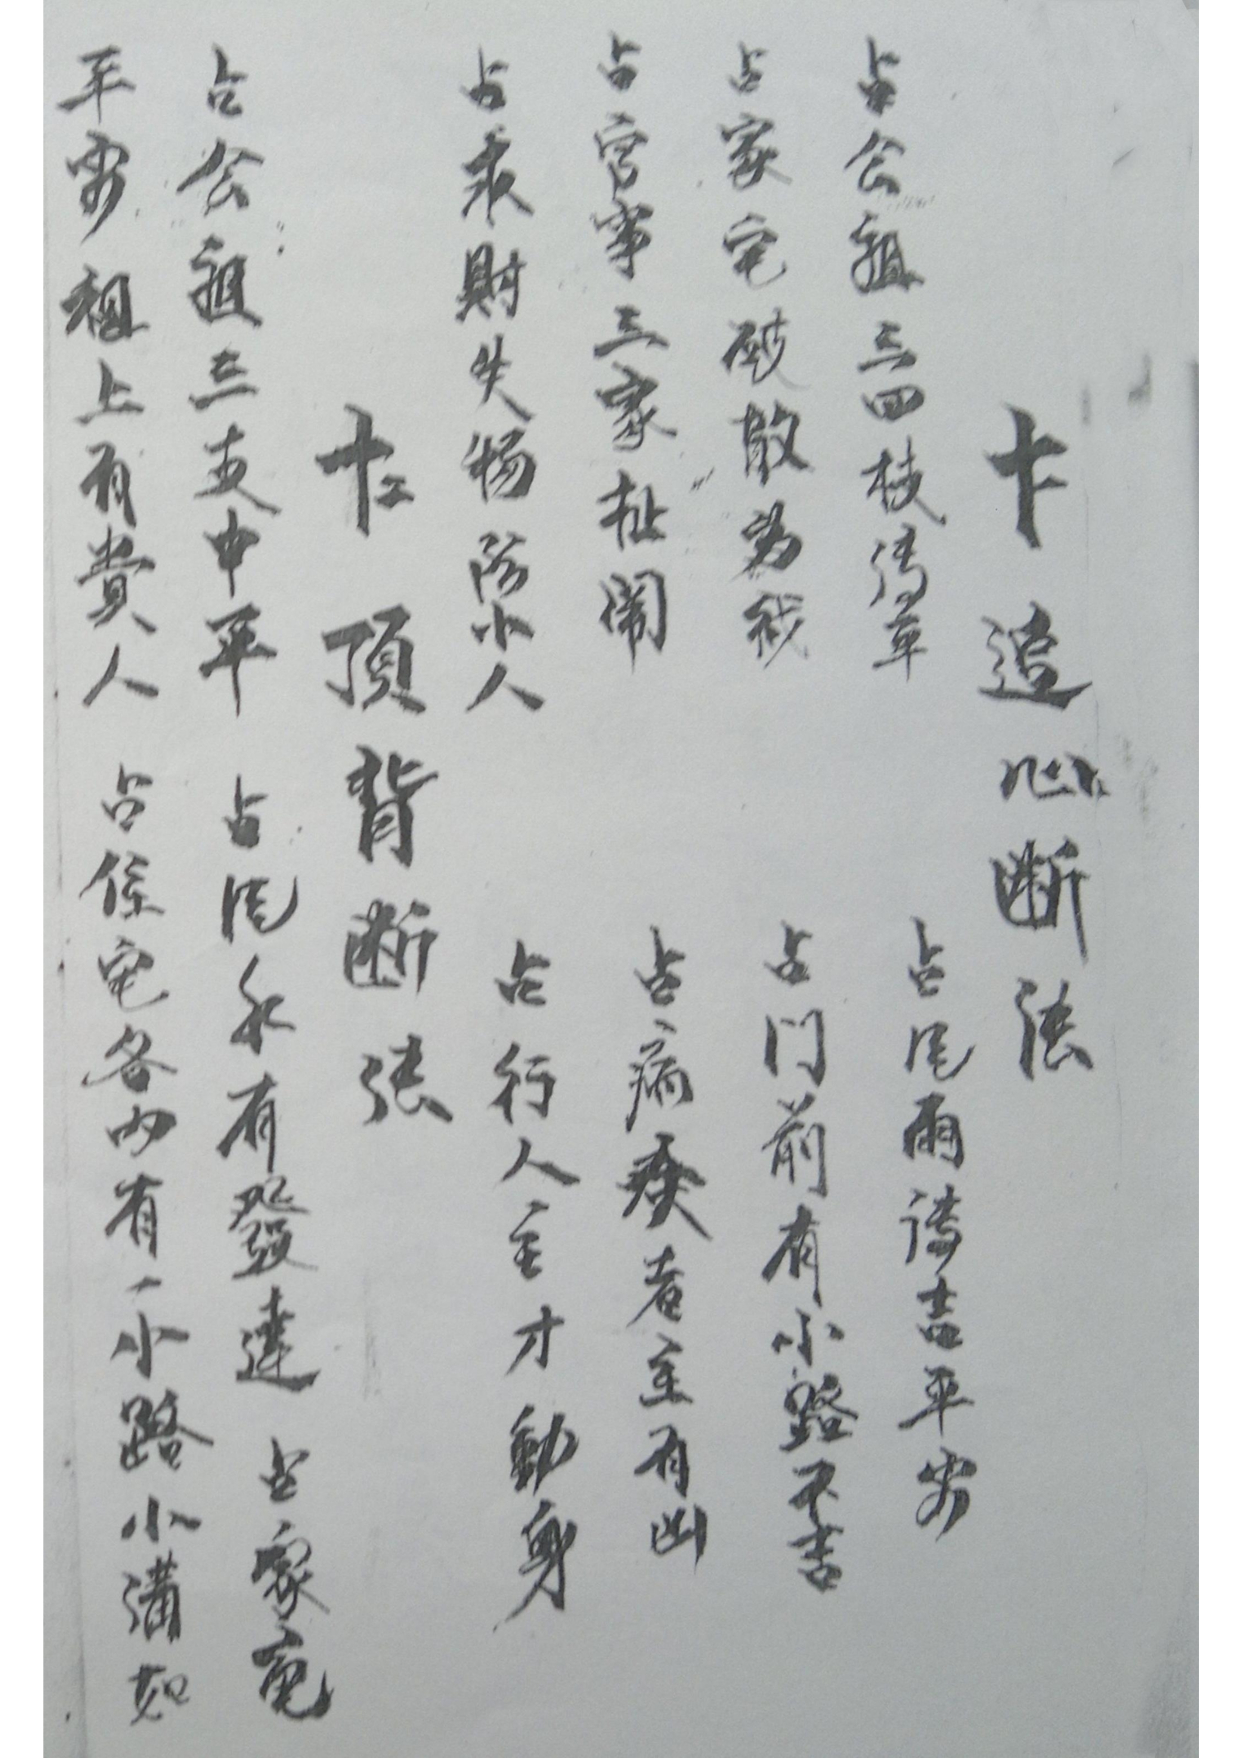 十 追心断法
占公祖三四枝 占尾雨 吉平安
占家宅破散 占门前有小路不吉
占官事三家扯闹 占病疾者主有凶
占求財失物防小人 占行人主才動身
十二 頂背断法
占公祖三支中平 占尾永有發達 占家宅
平安 祖上有貴人 占係宅各内有一小路小溝如